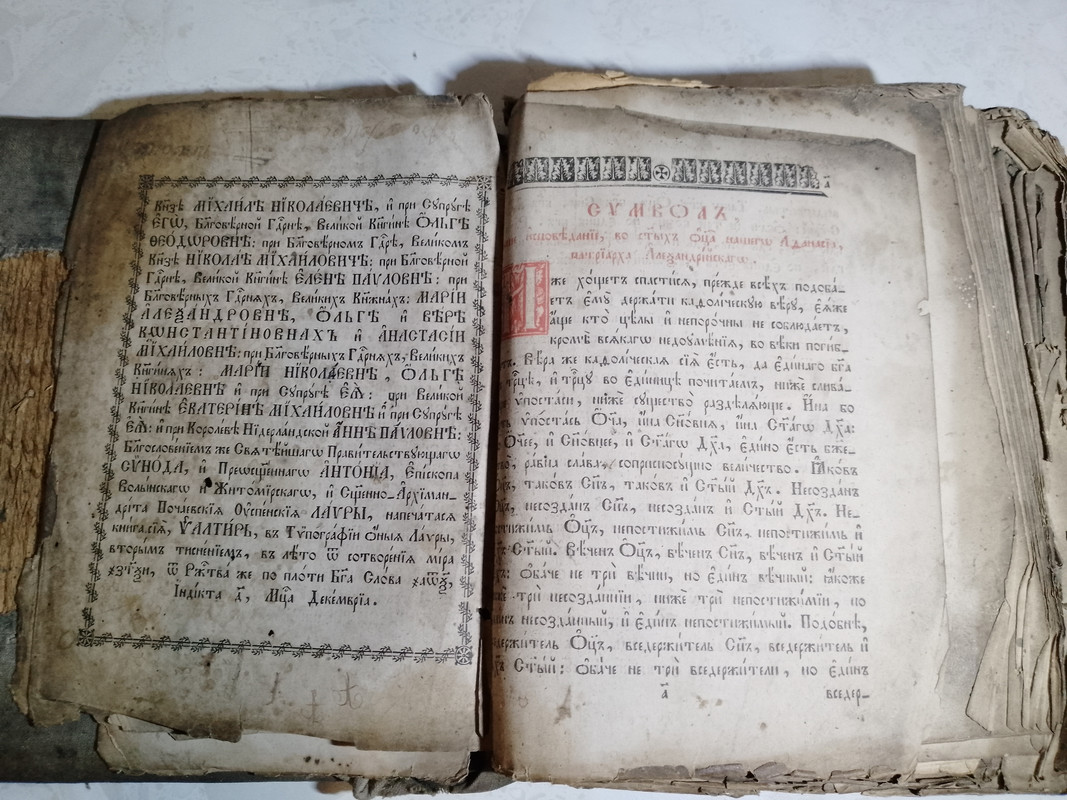 Кн҃зѣ МІХАИЛѢ НІКОЛАЕВИЧѢ, и҆ при Сꙋпрꙋгѣ
Є҆ГѠ̀, Бл҃говѣрной Гдⷭ҇рнѣ, Великой Кнѧгинѣ О҆ЛЬГѢ
ѲЕОДѠРОВНѢ: при Бл҃говѣрномъ Гдⷭ҇рѣ, Великомъ
Кн҃зѣ НІКОЛАѢ МІХАИЛОВИЧѢ: при Бл҃говѣрной
Гдⷭ҇рнѣ, Великой Кнѧгинѣ Є҆ЛЕНѢ ПАѴЛОВНѢ: при
Бл҃говѣрныхъ Гдⷭ҇рнѧхъ, Великихъ Кнѧжнахъ: МАРІИ
А҆ЛЕѮАНДРОВНѢ, О҆ЛЬГѢ и҆ ВѢРѢ
КѠНСТАНТІНОВНАХЪ и҆ А҆НАСТАСІИ
МІХАИЛОВНѢ: при Бл҃говѣрныхъ Гдⷭ҇рнѧхъ, Великихъ
Кнѧгинѧхъ: МАРІИ НІКОЛАЕВНѢ, О҆ЛЬГѢ
НІКОЛАЕВНѢ и҆ при Сꙋпрꙋгѣ Є҆Ѧ̀: при Великой
Кнѧгинѣ Є҆КАТЕРІНѢ МІХАИЛОВНѢ и҆ при Сꙋпрꙋгѣ
Є҆Ѧ̀: и҆ при Королевѣ Нідерландской А҆ННѢ ПАѴЛОВНѢ:
Бл҃гословенїемъ же Свѧтѣйшагѡ Правительствꙋющагѡ
СѴНОДА, и҆ Преѡсщ҃еннагѡ А҆НТОНІА, Є҆піскопа
Волынскагѡ и҆ Житомірскагѡ, и҆ Сщ҃енно-А҆рхіман-
дріта Почаевскїѧ Оу҆спенскїѧ ЛАѴРЫ, напечатасѧ
книга сїѧ, ѰАЛТИРЬ, въ Тѵпографїи ѻ҆ныѧ Лаѵры,
вторымъ тисненїемъ, въ лѣто ѿ сотворенїѧ міра
҂зтѯи, ѿ Рж҃тва же по плоти Бг҃а Слова
І҆ндікта Мц҃а Декемврїа.
СѴМВОЛЪ
исповѣданїе, во ст҃ыхъ ѻ҆ц҃а нашегѡ А҆ѳанасїа,
патрїарха А҆леѯандрїйскагѡ.
Иже хощетъ спастисѧ, прежде всѣхъ подоба-
етъ є҆мꙋ̀ держати каѳолическꙋю вѣрꙋ, є҆ѧже
а҆ще кто̀ цѣлы и҆ непорочны не соблюдаетъ,
кромѣ всѧкагѡ недоꙋмѣнїѧ, во вѣки погиб-
Вѣра же каѳолическаѧ сїѧ̀ є҆сть, да є҆динаго бг҃а
трⷪ҇цѣ, и҆ трⷪ҇цꙋ во є҆диницѣ почитаемъ, нижѐ слива-
ѵ҆постаси, нижѐ сꙋщество раздѣлѧюще. И҆на бо
ѵ҆постась Ѻ҆́ча, и҆на Сн҃овнѧ, и҆на Ст҃агѡ Дх҃а:
Ѻ҆́чее, и҆ Сн҃овнее, и҆ Ст҃агѡ Дх҃а, є҆дино є҆сть бже-
равна слава, соприсносꙋщно величество. Ꙗ҆ковъ
таковъ Сн҃ъ, таковъ и҆ Ст҃ый Дх҃ъ. Несозданъ
несозданъ Сн҃ъ, несозданъ и҆ Ст҃ый Дх҃ъ. Не-
Ѻ҆ц҃ъ, непостижимь Сн҃ъ, непостижимь и҆
Ст҃ый. Вѣченъ Ѻ҆ц҃ъ, вѣченъ Сн҃ъ, вѣченъ и҆ Ст҃ый
ѻ҆баче не трѝ вѣчни, но є҆динъ вѣчный: ꙗ҆коже
трѝ несозданнїи, нижѐ трѝ непостижимїи, но
несозданный, и҆ є҆динъ непостижимый. Подобнѣ,
Ѻ҆ц҃ъ, вседержитель Сн҃ъ, вседержитель и҆
Ст҃ый: ѻ҆баче не трѝ вседержители, но є҆динъ
а҃ вседер-